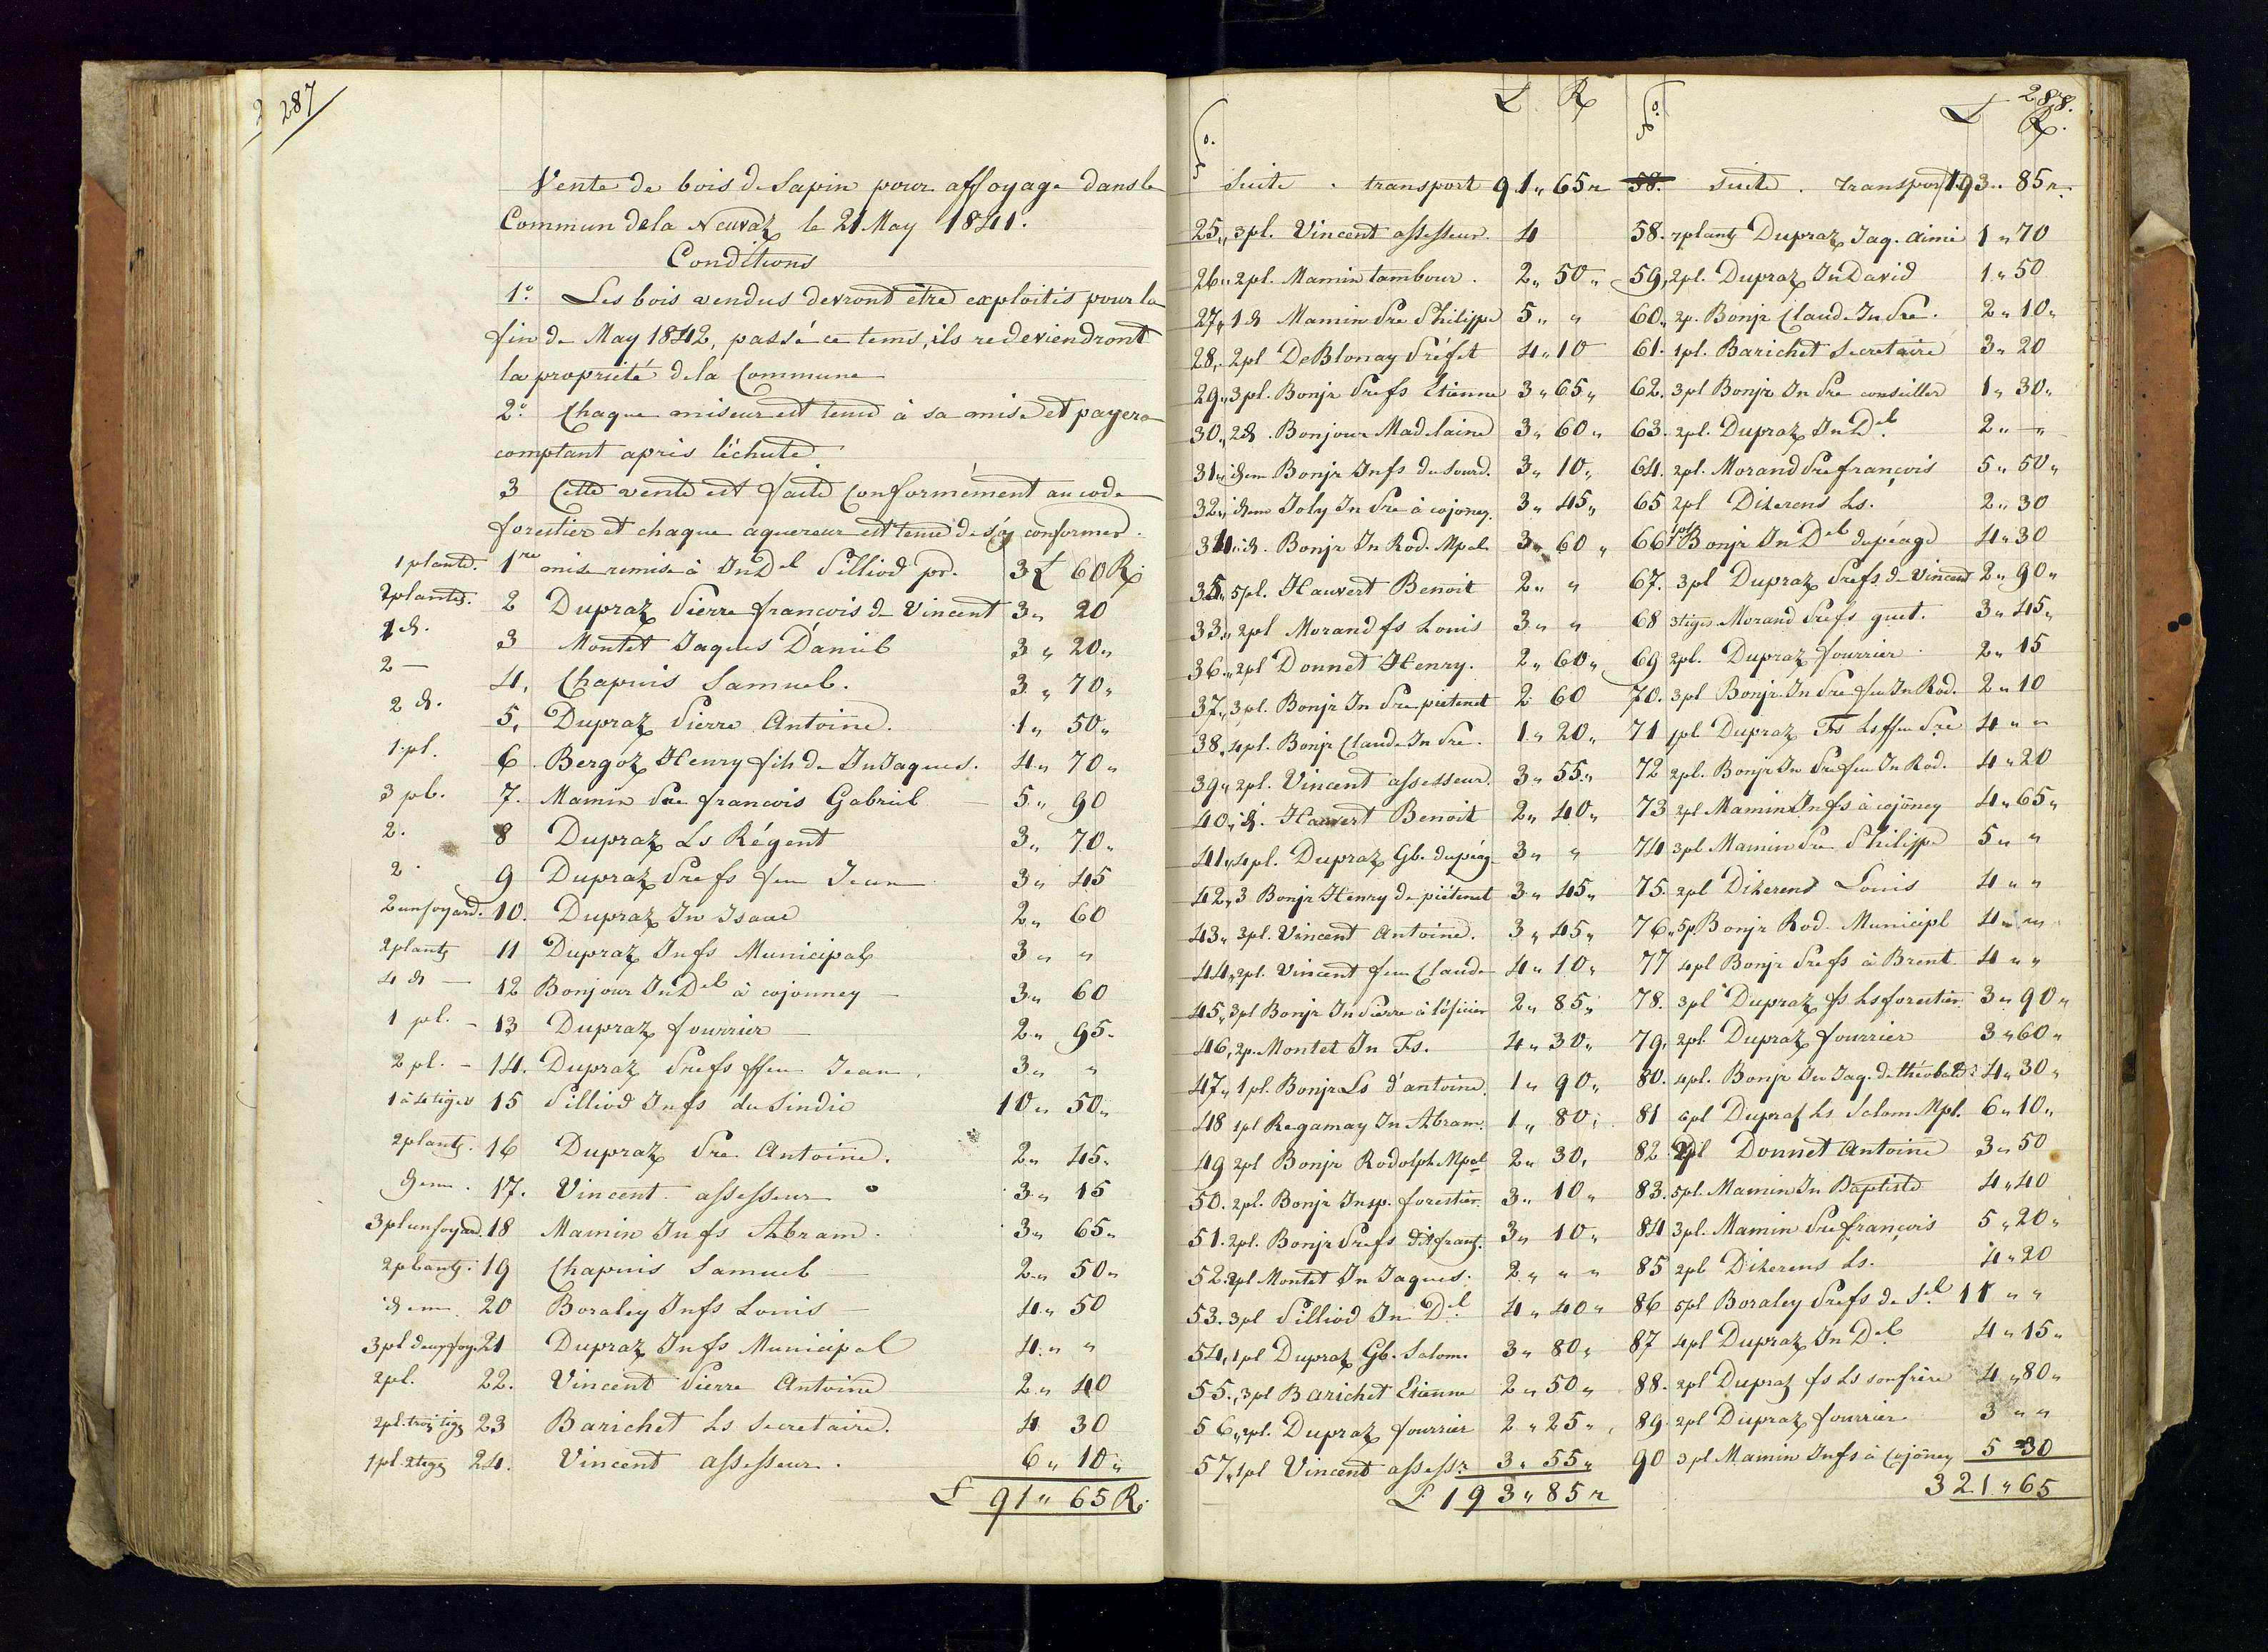 287
Vente de bois de Sapin pour affoyage dans le
Commun de la Neuvaz le 21 May 1841.
Conditions
1.° Les bois vendus devront être exploités pour la
fin de May 1842, passé ce tems, ils redeviendront
la propriété de la Commune
2.° Chaque miseur est tenu à sa mise et payera
comptant après l'échute
3 Cette vente est faite Conformément au code
forestier et chaque aquereur est tenu de s'y conformer.
1 plante. 1re mise remise à Jn Del Pilliod pr. 3 £ 60 R.
2 plantes. 2 Dupraz Pierre francois de Vincent 3 " 20
1 d. 3 Montet Jaques Daniel 3 " 20 "
2 — 4, Chapuis Samuel. 3 " 70 "
2 d. 5, Dupraz Pierre Antoine. 1 " 50 "
1 pl. 6 Bergoz Henry fils de Jn Jaques. 4 " 70 "
3 pl. 7. Mamin Pre francois Gabriel 5 " 90
2. 8 Dupraz Ls Régent 3 " 70 "
2. 9 Dupraz Pre fs feu Jean 3 " 45
2 un foyard. 10. Dupraz Jn Isaac 2 " 60
2 plants 11 Dupraz Jn fs Municipal 3 " "
4 d — 12 Bonjour Jn Del à cojonney — 3 " 60
1 pl. - 13 Dupraz fourrier 2 " 95 -
2 pl. - 14. Dupraz Pre fs ffeu Jean. 3 " "
1 à 4 tiges 15 Pilliod Jn fs du Sindic 10 " 50 "
2 plants. 16 Dupraz Pre Antoine. 2 " 45 "
dem. 17. Vincent assesseur 3 " 15
3 pl un foyard. 18 Mamin Jn fs Abram. 3 " 65 "
2 plants. 19 Chapuis Samuel 2 " 50 "
idem 20 Boraley Jn fs Louis — 4 " 50
3 pl deux foy. 21 Dupraz Jn fs Municipal 4 " "
2 pl. 22. Vincent Pierre Antoine 2 " 40
2 pl. trois tiges 23 Barichet Ls Secretaire. 4 30
1 pl. 2 tiges 24. Vincent assesseur. 6 " 10 "
£ 91 " 65 R.
288.
N.° £ R
Suite. transport 91 " 65 r
25 " 3 pl. Vincent assesseur. 4
26 " 2 pl. Mamin tambour. 2 " 50 "
27 " 1 d Mamin Pre Philippe 5 " "
28, 2 pl DeBlonay Préfet 4 " 10
29 " 3 pl. Bonjr Pre fs Etienne 3 " 65 "
30 " 2 d. Bonjour Madelaine 3 " 60 "
31 " idem Bonjr Jn fs du Sourd. 3 " 10 "
32 " idem Joly Jn Pre à cojoney. 3 " 45 "
34 " id. Bonjr Jn Rod. Mpal 3 " 60 "
35 " 5 pl. Hauvert Benoit 2 " "
33 " 2 pl Morand fs Louis 3 " "
36 " 2 pl Donnet Henry. 2 " 60 "
37 " 3 pl. Bonjr Jn Pre piétenet 2 60
38, 4 pl. Bonjr Claude Jn Pre. 1 " 20 "
39 " 2 pl. Vincent assesseur. 3 " 55 "
40 " id. Hauvert Benoit 2 " 40 "
41 " 4 pl. Dupraz Gb. du péag. 3 " "
42 " 3 Bonjr Henry de piétenet 3 " 45 "
43 " 3 pl. Vincent Antoine. 3 " 45 "
44 " 2 pl. Vincent feu Claude 4 " 10 "
45 " 3 pl Bonjr Jn Pierre à l'oficier 2 " 85 "
46, 2 p. Montet Jn Fs. 4 " 30 "
47 " 1 pl. Bonjr Ls d'antoine. 1 " 90 "
48 1 pl Regamay Jn Abram. 1 " 80 "
49 2 pl Bonjr Rodolph Mpal 2 " 30,
50. 2 pl. Bonjr Insp. forestier. 3 " 10 "
51. 2 pl. Bonjr Pre fs dit franç. 3 " 10 "
52. 2 pl Montet Jn Jaques. 2 " " "
53. 3 pl Pilliod Jn Del 4 " 40 "
54, 1 pl Dupraz Gb. Salom. 3 " 80 "
55., 3 pl Barichet Etienne 2 " 50 "
56 " 2 pl. Dupraz fourrier 2 " 25 "
57 " 1 pl Vincent assessr 3 " 55 "
£ 193 " 85 r
N.° £ R.
58. Suite. Transport 193 " 85 r.
58. 7 plants Dupraz Jaq. Aimé 1 " 70
59, 2 pl. Dupraz Jn David 1 " 50
60 " 2 p. Bonjr Claude Jn Pre. 2 " 10 "
61. 1 pl. Barichet Secretaire 3 " 20
62. 3 pl Bonjr Jn Pre conseiller 1 " 30 "
63. 2 pl. Dupraz Jn Del 2 " — "
64. 2 pl. Morand Pre françois 5 " 50 "
65 2 pl Dizerens Ls. 2 " 30
66 1 pl Bonjr Jn Del du péage 4 " 30
67. 3 pl Dupraz Pre fs de Vincent 2 " 90 "
68 3 tiges Morand Pre fs guet. 3 " 45 "
69 2 pl. Dupraz fourrier. 2 " 15
70. 3 pl Bonjr Jn Pre feu Jn Rod. 2 " 10
71 1 pl Dupraz Fs Ls ffeu Pre 4 " "
72 2 pl. Bonjr Jn Pre feu Jn Rod. 4 " 20
73 2 pl Mamin Jn fs à cojoney 4 " 65 "
74 3 pl Mamin Pre Philippe 5 " "
75. 2 pl Dizerens Louis 4 " "
76 " 5 p. Bonjr Rod. Municipl 4 " "
77 4 pl Bonjr Pre fs à Brent 4 " "
78. 3 pl Dupraz fs Ls forestier 3 " 90 "
79. 2 pl. Dupraz fourrier 3 " 60 "
80. 4 pl. Bonjr Jn Jaq. de théobald 4 " 30 "
81 6 pl Dupraz Ls Salom Mpl. 6 " 10 "
82 2 pl Donnet Antoine 3 " 50
83. 5 pl. Mamin Jn Baptiste 4 " 40
84 3 pl. Mamin Pre françois 5 " 20 "
85 2 pl Dizerens Ls. 4 " 20
86 5 pl Boraley Pre fs de Sel 11 " "
87 4 pl Dupraz Jn Del 4 " 15 "
88. 2 pl Dupraz fs Ls son frère 4 " 80 "
89. 2 pl Dupraz fourrier. 3 " "
90 3 pl Mamin Jn fs à Cojoney 5 30
321 " 65